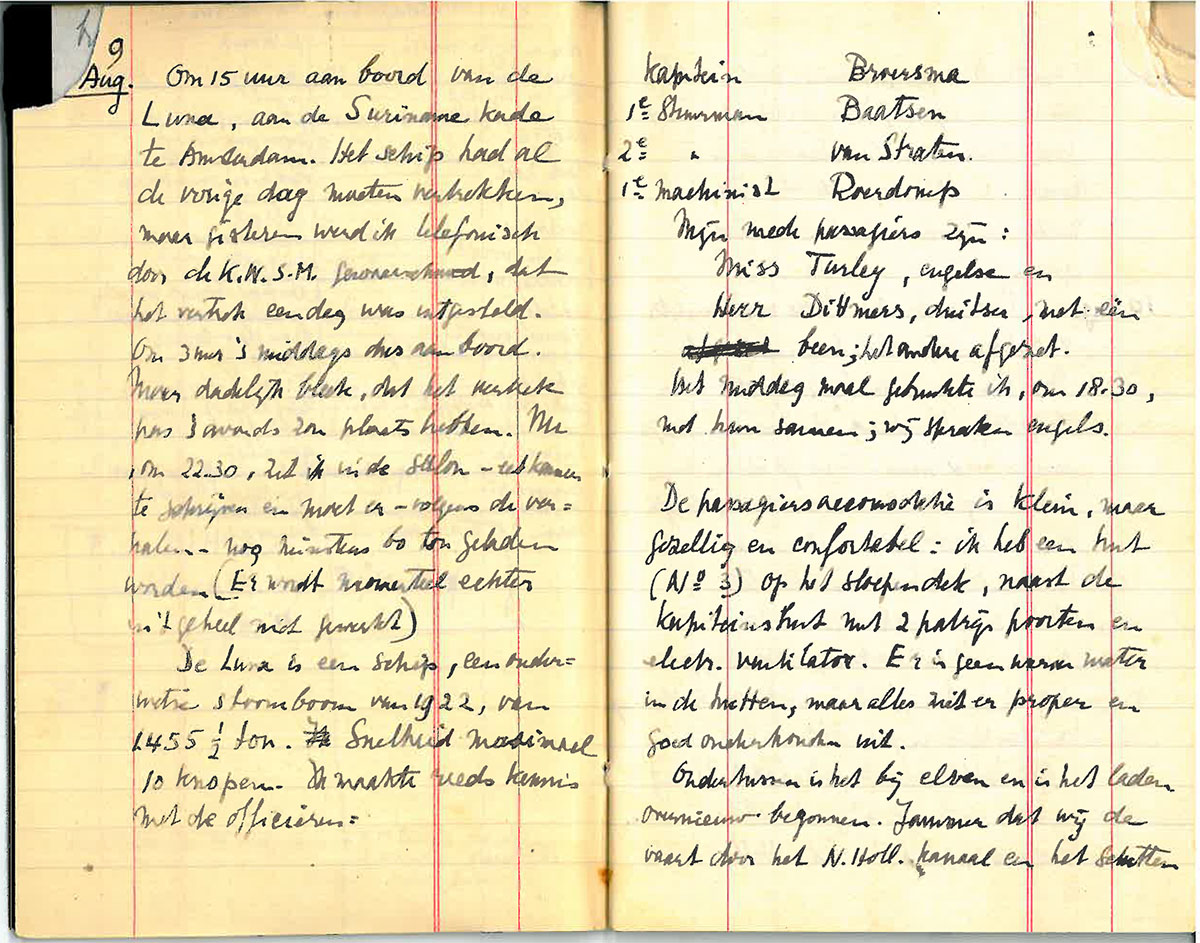 9
Aug. Om 15 uur aan boord van de
Luna, aan de Suriname kade
te Amsterdam. Het schip had al
de vorige dag moeten vertrekken,
maar gisteren werd ik telefonisch
door de K.W.S.M. gewaarschuwd, dat
het vertrek een dag was uitgesteld.
Om 3 uur 's middags dus aan boord.
Maar dadelijk bleek, dat het vertrek
pas 's avonds zou plaats hebben. Nu
, om 22.30, zit ik in de salon –
te schrijven en moet er – volgens de ver=
halen – nog minstens 60 ton geladen
worden (Er wordt momenteel echter
in 't geheel niet gewerkt)
De Luna is een schip, een ouder=
wetse stoomboom van 1922, van
1455 ½ ton. Snelheid maximaal
10 knopen. Ik maakte reeds kennis
met de officieren=
Kapitein Broersma
1e Stuurman Baatsen
2e " van Straten.
1e machinist Roerdomp
Mijn mede passagiers zijn:
Miss Turley, engelse en
Herr Dittmers, duitser, met één
been; het andere afgezet.
Het middag maal gebruikte ik, om 18.30,
met hun samen; wij spraken engels.
De passagiersaccomodatie is klein, maar
gezellig en confortabel: ik heb een hut
(No 3) op het sloependek, naast de
kapiteinshut met 2 patrijs poorten en
electr. ventilator. Er is geen warm water
in de hutten, maar alles ziet er proper en
goed onderhouden uit.
Ondertussen is het bij elven en is het laden
overnieuw begonnen. Jammer dat wij de
vaart door het N. Holl. kanaal en het Schutten